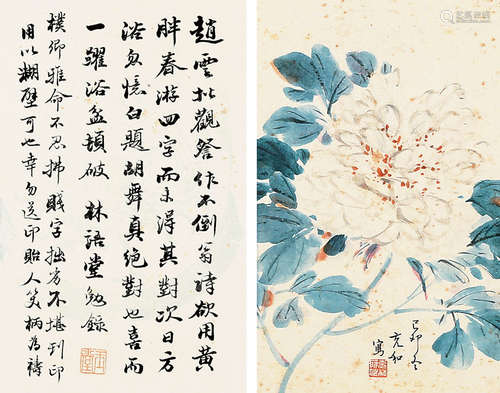 趙雲北觀卷作不倒翁詩欲用黃
胖春游四字而未得其對次日方
浴忽憶白題胡舞真絕對也喜而
一躍浴盆頓破 林語堂敬錄
樸卿雅命不忍拂賤字拙劣不堪刊印
用以糊壁可也幸勿送印貽人笑柄為禱
己卯冬
充和
寫